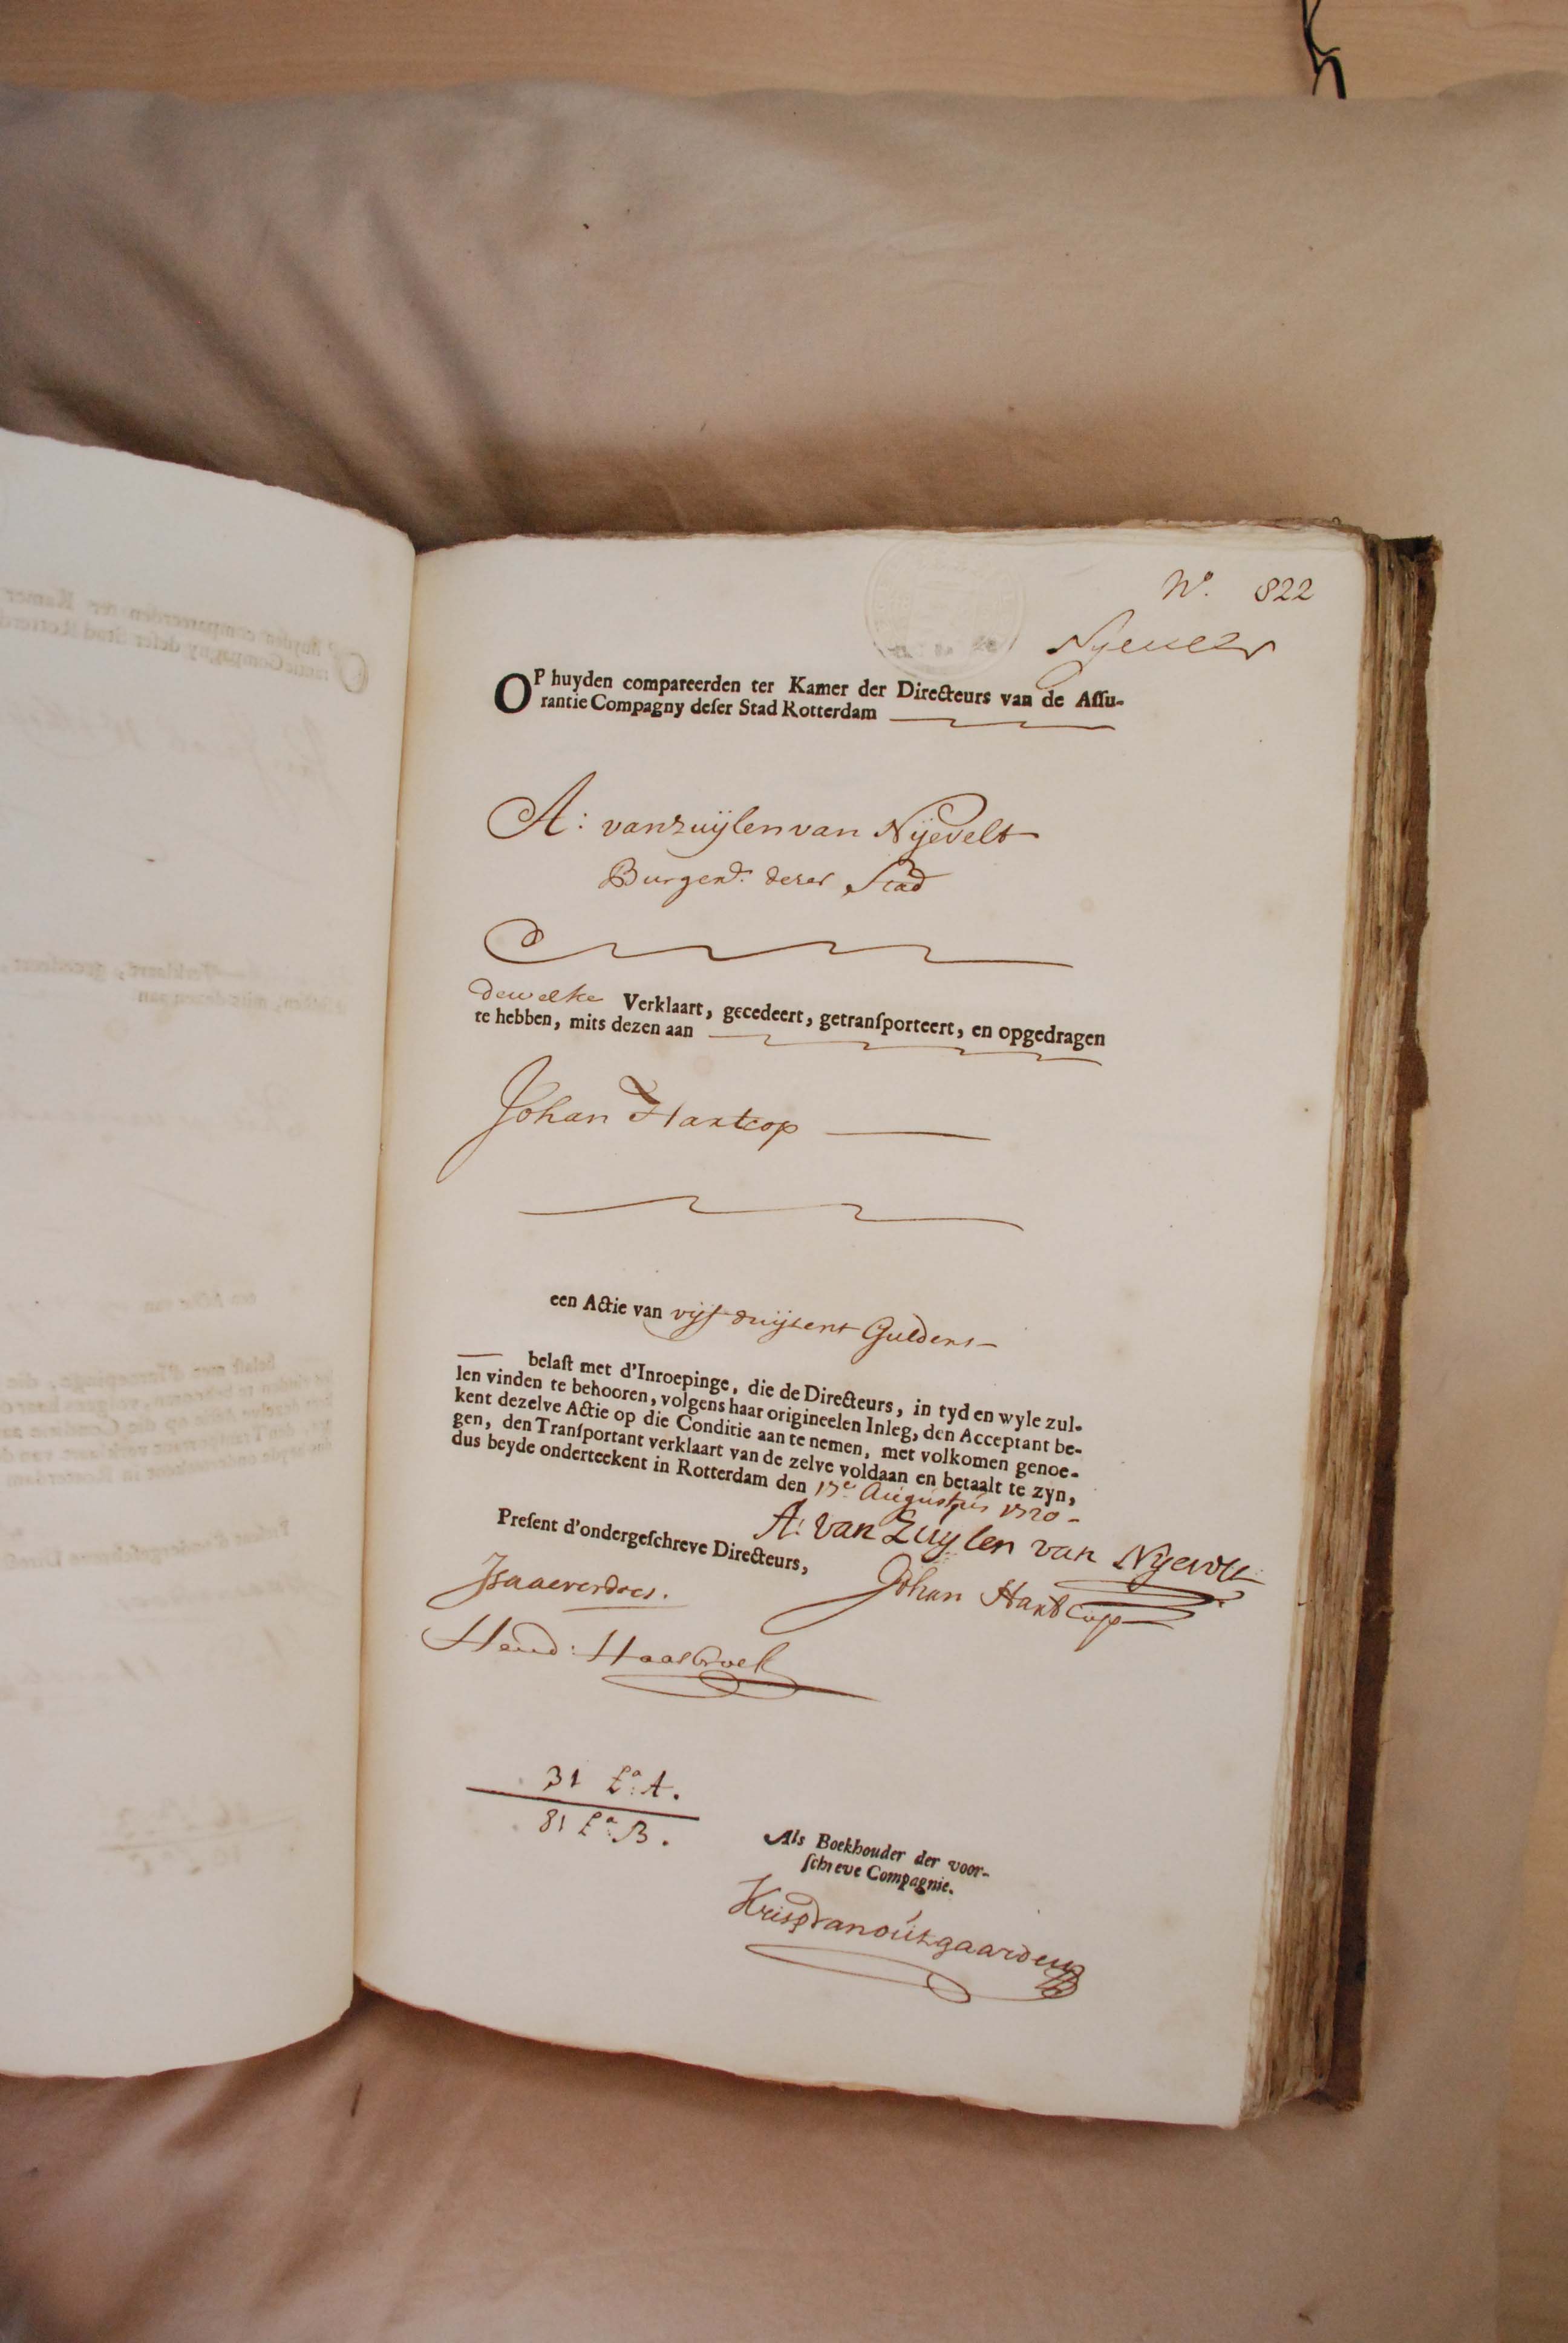 No. 822
Nyevelt
OP huyden compareerden ter Kamer der Directeurs van de Assu-
rantie Compagny deser Stad Rotterdam
A: van zuijlen van Nijevelt
Burgemr. deser Stad
dewelke Verklaart, gecedeert, getransporteert, en opgedragen
te hebben, mits dezen aan
Johan Hartcop
een Actie van vijf duijsent Guldens
belast met d'Inroepinge, die de Directeurs, in tyd en wyle zul-
len vinden te behooren, volgens haar origineelen Inleg, den Acceptant be-
kent dezelve Actie op die Conditie aan te nemen, met volkomen genoe-
gen, den Transportant verklaart van de zelve voldaan en betaalt te zyn,
dus beyde onderteekent in Rotterdam den 17e Augustus 1720
A: van Zuylen van Nyevelt
Present d'ondergeschreve Directeurs,
Johan Hartcop
Isaac verdoes.
Hend: Haasbroek
31 La: A.
81 La: B.
Als Boekhouder der voor-
schreve Compagnie.
Krisp van outgaarden